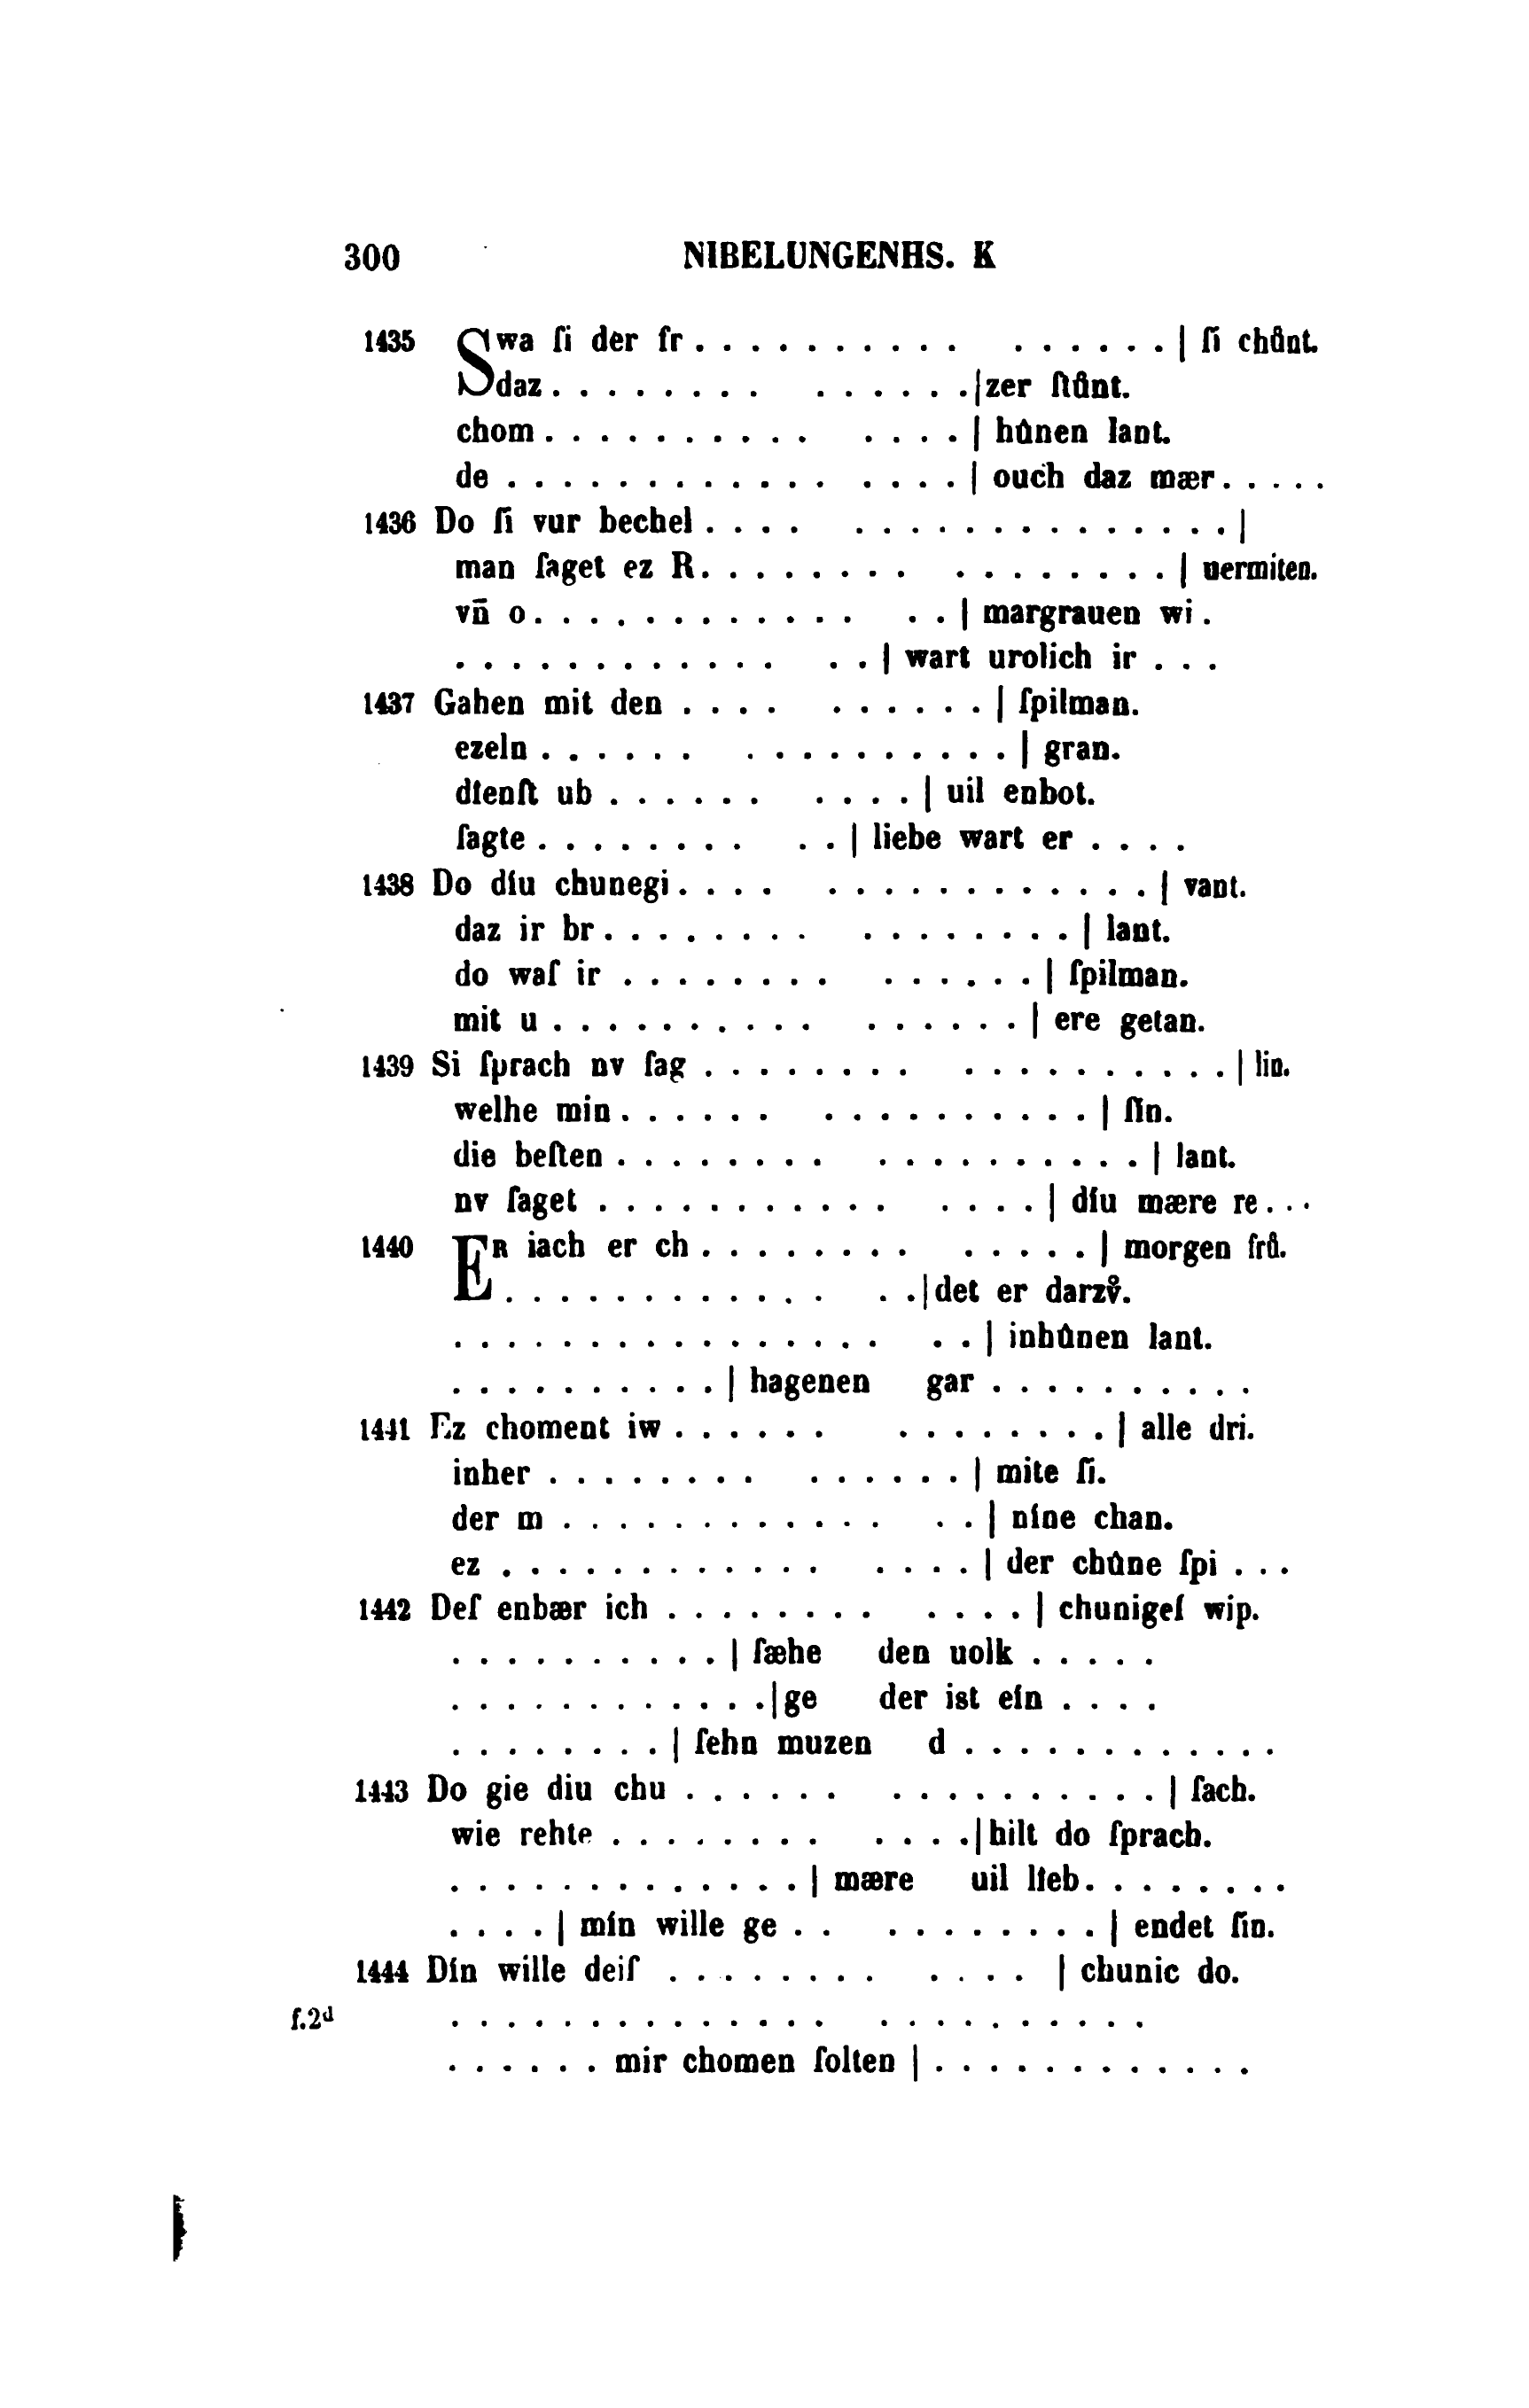 300 NIBELUNGENHS. K
1435 Swa ſi der fr . . . . . . . . . . . . . . . . | ſi chůnt.
daz . . . . . . . . . . . . . . |zer ſtůnt.
chom . . . . . . . . . . . . . . | hůnen lant.
de . . . . . . . . . . . . . . . . | ouch daz mær . . . . .
1436 Do ſi vur bechel . . . . . . . . . . . . . . . . . . |
man ſaget ez R . . . . . . . . . . . . . . . . | uermiten.
vn̄ o . . . . . . . . . . . . . . | margrauen wi .
. . . . . . . . . . . . . . | wart urolich ir . . .
1437 Gahen mit den . . . . . . . . . . | ſpilman.
ezeln . . . . . . . . . . . . . . . . | gran.
díenſt ub . . . . . . . . . . | uil enbot.
ſagte . . . . . . . . . . | liebe wart er . . . .
1438 Do díu chunegi . . . . . . . . . . . . . . . . | vant.
daz ir br . . . . . . . . . . . . . . . . | lant.
do waſ ir . . . . . . . . . . . . . . | ſpilman.
mit u . . . . . . . . . . . . . . . . | ere getan.
1439 Si ſprach nv ſag . . . . . . . . . . . . . . . . . . | lin.
welhe min . . . . . . . . . . . . . . . . | ſín.
die beſten . . . . . . . . . . . . . . . . . . | lant.
nv ſaget . . . . . . . . . . . . . . . | díu mære re . . .
1440 ER iach er ch . . . . . . . . . . . . . | morgen frů.
. . . . . . . . . . . . . . |det er darzv̊.
. . . . . . . . . . . . . . . . . . | inhůnen lant.
. . . . . . . . . . | hagenen gar . . . . . . . . . .
1441 Ez choment iw . . . . . . . . . . . . . . | alle dri.
inher . . . . . . . . . . . . . . | mite ſi.
der m . . . . . . . . . . . . . . | níne chan.
ez . . . . . . . . . . . . . . . . | der chůne ſpi . . .
1442 Deſ enbær ich . . . . . . . . . . . . | chunigeſ wip.
. . . . . . . . . . | ſæhe den uolk . . . . .
. . . . . . . . . . . . |ge der ist eín . . . .
. . . . . . . . | ſehn muzen d . . . . . . . . . . . .
1443 Do gie diu chu . . . . . . . . . . . . . . . . | ſach.
wie rehte . . . . . . . . . . . . |hilt do ſprach.
. . . . . . . . . . . . . | mære uil líeb . . . . . . . .
. . . . | mín wille ge . . . . . . . . . . | endet ſin.
1444 Dín wille deiſ . . . . . . . . . . . . | chunic do.
f.2d . . . . . . . . . . . . . . . . . . . . . . . .
. . . . . . mir chomen ſolten | . . . . . . . . . . . .